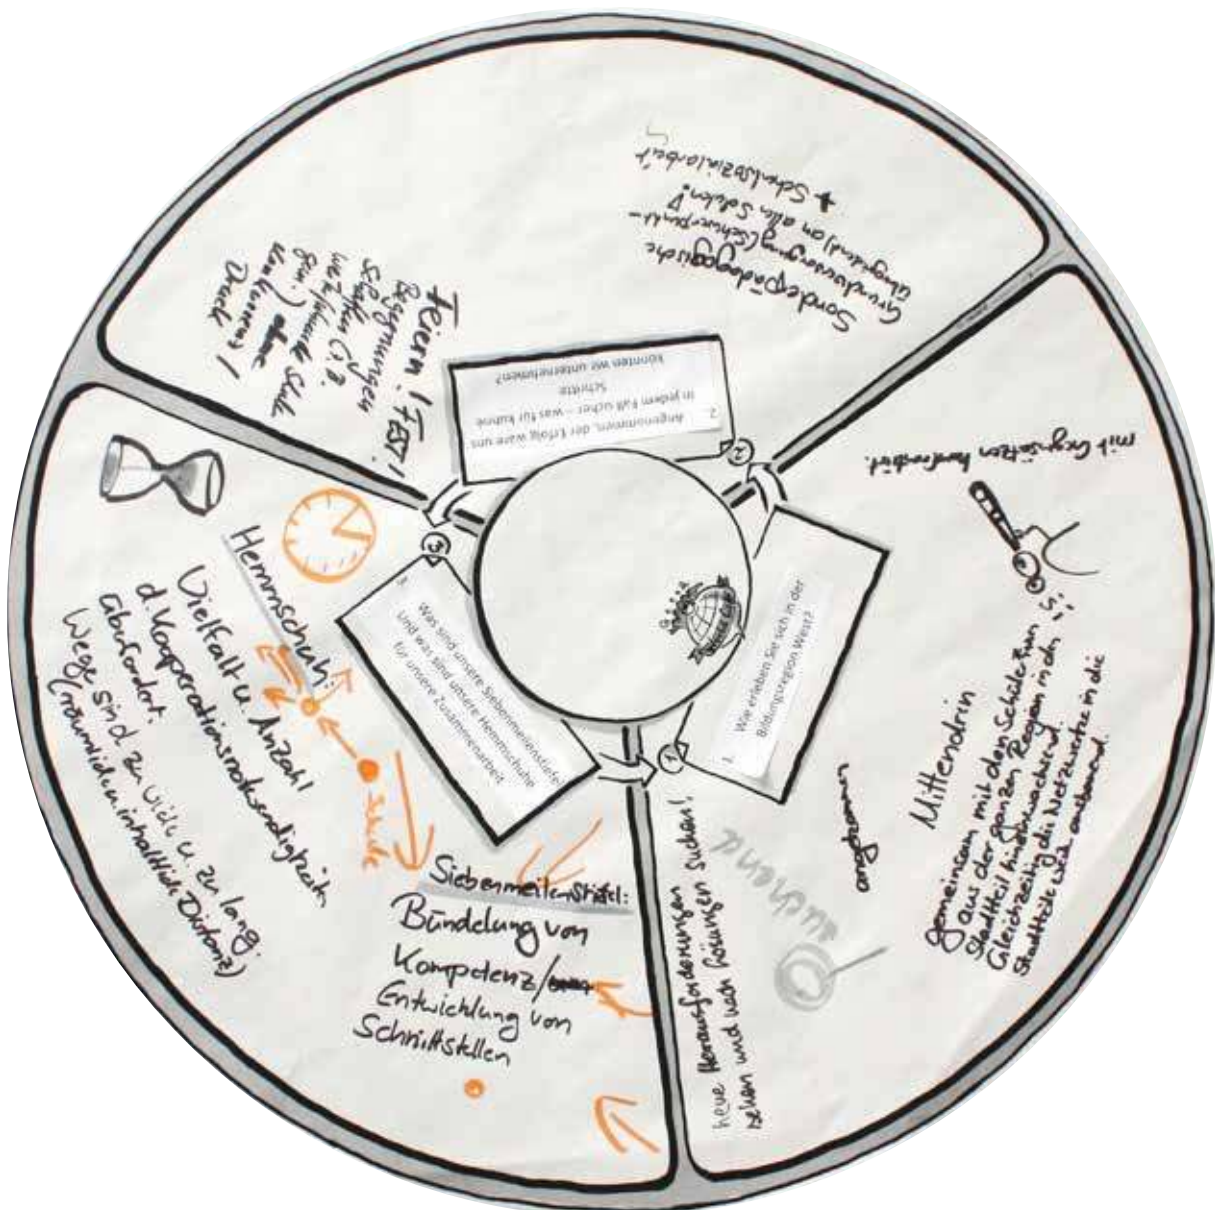 1. Wie erleben Sie sich in der
Bildungsregion West?
mit Gegensätzen konfrontiert.
Mittendrin
gemeinsam mit den Schüler*n
aus der ganzen Region in den
Stadtteil hineinwachsend.
Gleichzeitig die Netzwerke in die
Stadtteile
angekommen
suchend
neue Herausforderungen
sehen und nach Lösungen suchen!
2. Angenommen, der Erfolg wäre uns
in jedem Fall sicher – was für kühne
Schritte
könnten wir unternehmen?
Sonderpädagogische
Grundversorgung (Schwerpunkt-
übergreifend) an allen Schulen!
+ Schulsozialarbeit
Feiern! FEST!
Begegnungen
schaffen (z.B.
Gym.) ohne
Konkurrenz/
Druck
3. Was sind unsere Siebenmeilenstiefel
Und was sind unsere Hemmschuhe
für unsere Zusammenarbeit
Hemmschuh:
Vielfalt u. Anzahl
d. Kooperationsnotwendigkeiten
überfordert.
Wege sind zu viele u. zu lang.
(räumliche u. inhaltliche Distanz)
Schule
Siebenmeilenstiefel:
Bündelung von
Kompetenz/
Entwicklung von
Schnittstellen